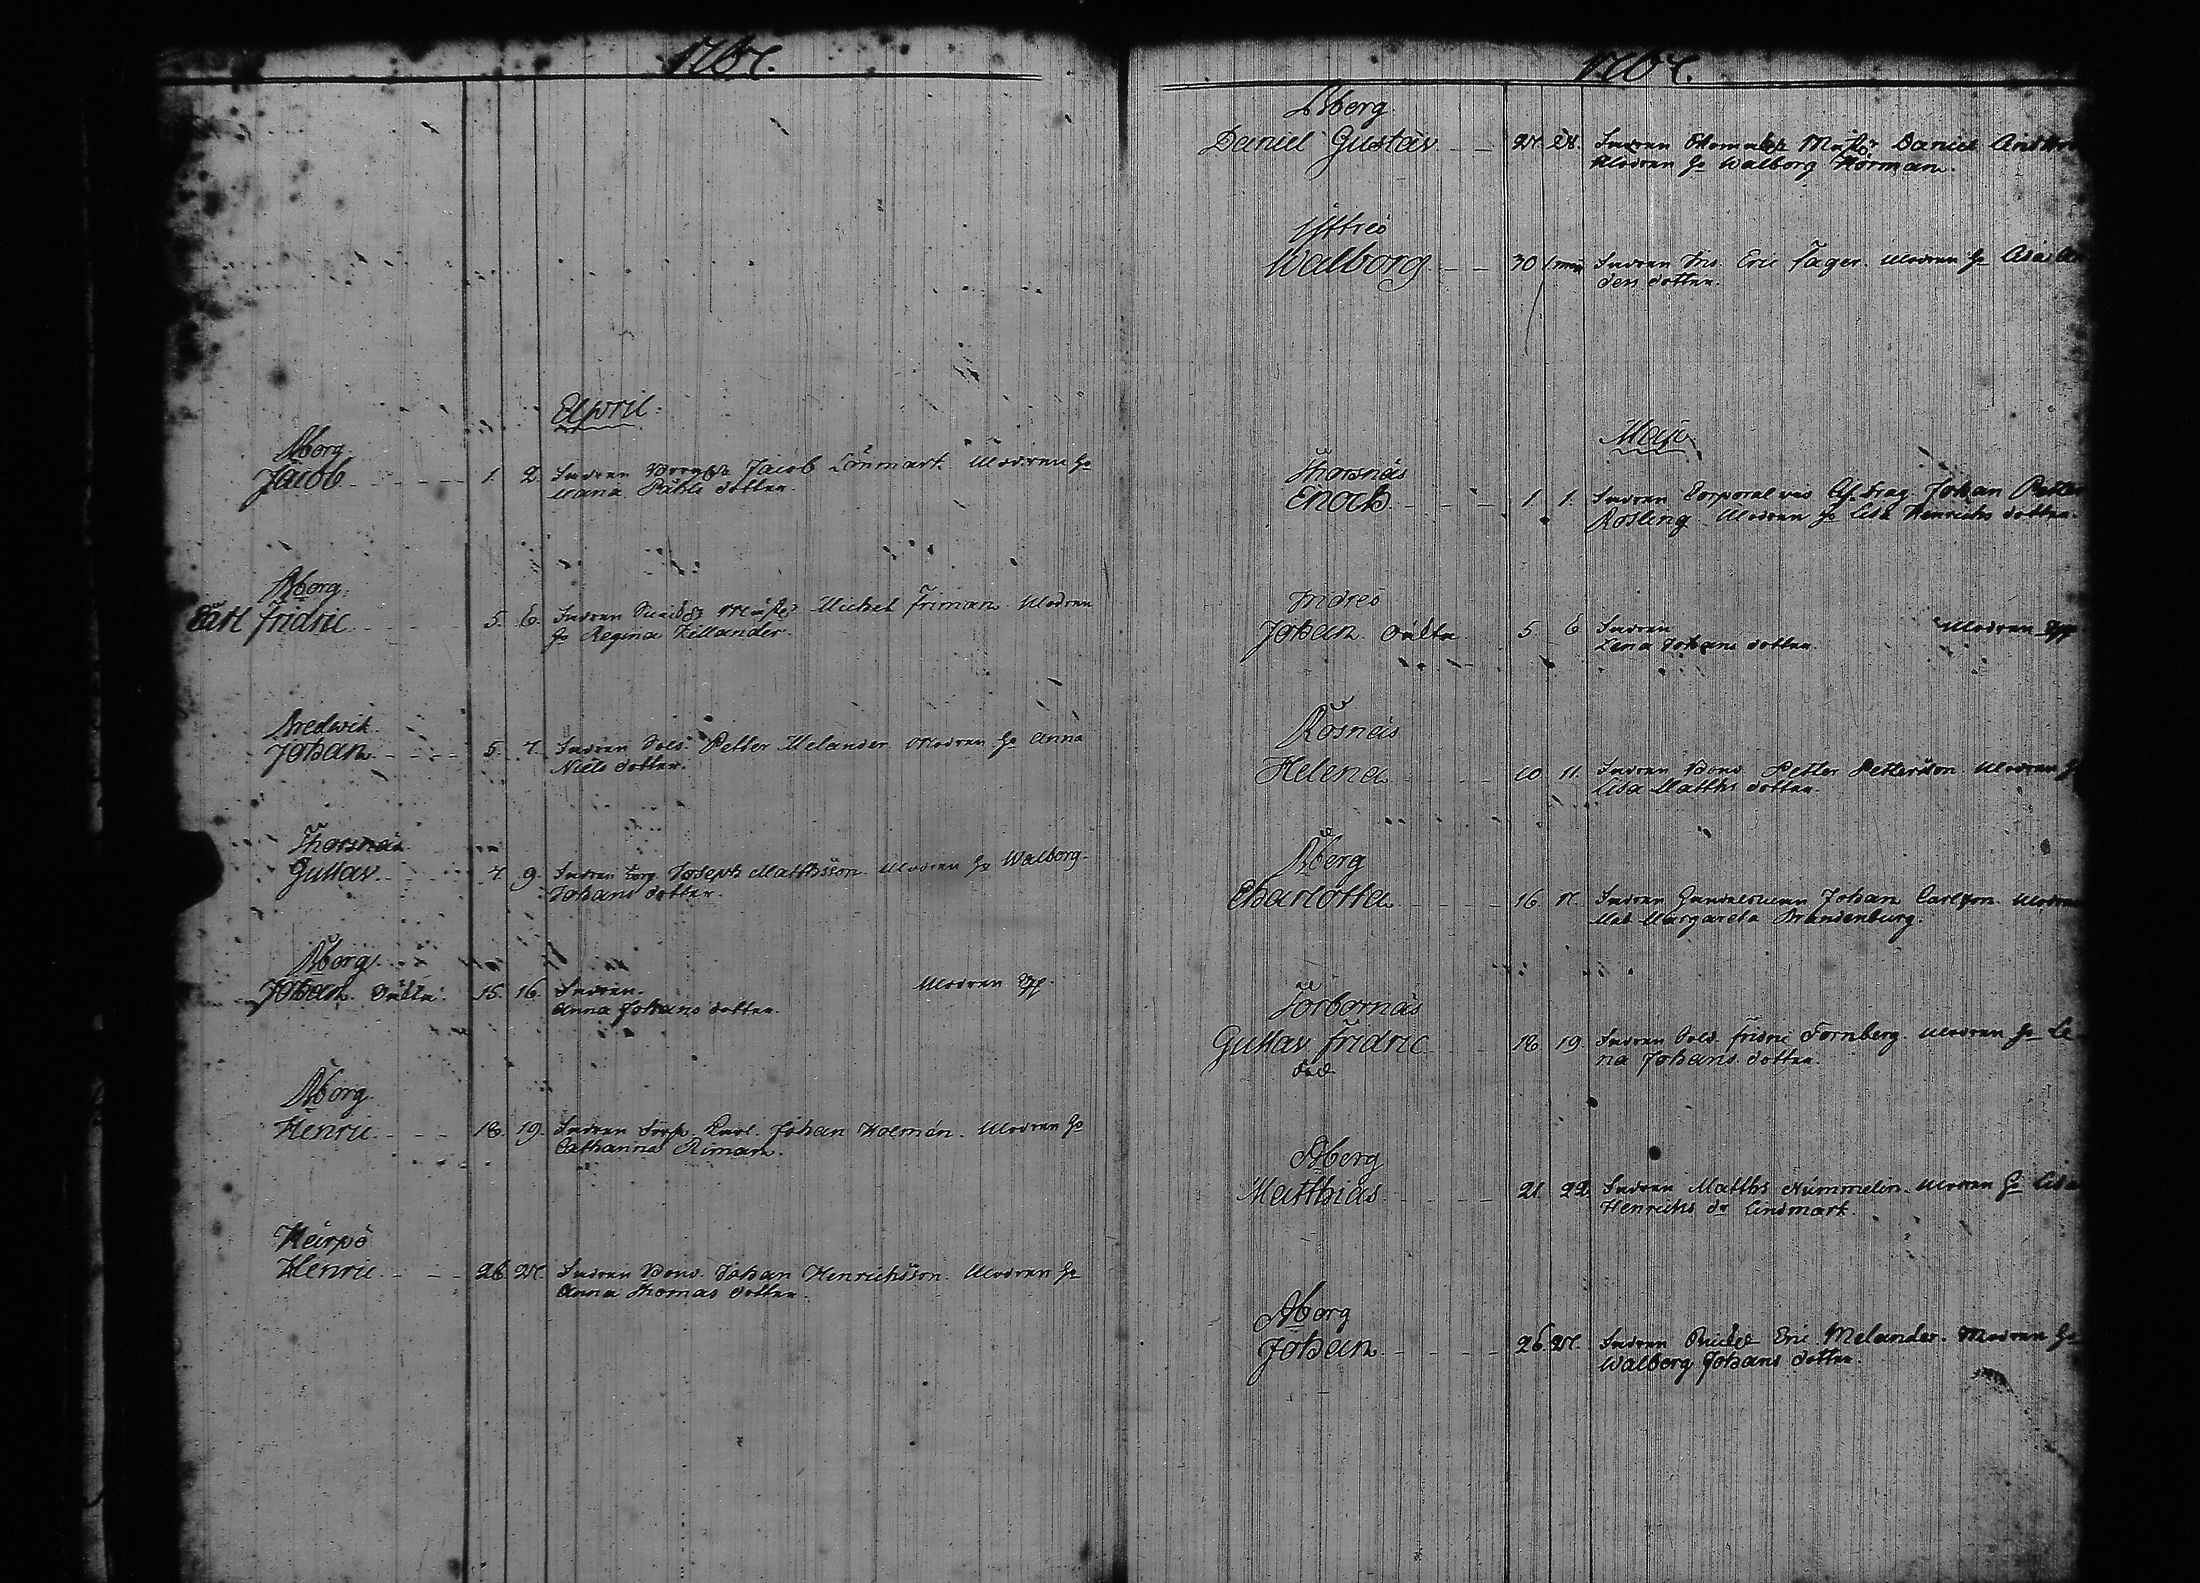 1767.
April.
Åborg
Jacob 1. 2. Fadren Jacob Lönmark. Modren H:o
Maria Påhls dotter.
Åborg.
Carl Fridric 5. 6. Fadren Mäster Michel Friman. Modren
H:o Regina Zillander.
Bredwik
Johan 5. 7. Fadren Sold. Petter Melander. Modren H:o Anna
Niels dotter.
Thorsnäs
Gustav 7. 9. Fadren Torp. Joseph Matthsson. Modren H:o Walborg
Johans dotter.
Åborg.
Johan oäkta 15. 16. Fadren. Modren
Anna Johans dotter.
Åborg.
Henric 18. 19. Fadren Johan Holmén. Modren H:o
Catharina Riman.
Kärpö
Henric 26. 27. Fadren Bond. Johan Henrichsson. Modren H:o
Anna Thomas dotter.
1767.
Åberg
Daniel Gustav 27. 28. Fadren Mäster Daniel
Modren H:o Walborg Hörman.
Yttreö
Walborg 30 Fadren Eric Fager. Modren H:o Lisa
ders dotter.
Majo
Thorsnäs
Enoch 1. 1. Fadren Corporal Johan Petter
Rosling. Modren H:o Lisa Henrichs dotter.
Indreö
Johan oäkta 5 6 Fadren Modren
Lena Johans dotter.
Rösnäs
Helena 10. 11. Fadren Bond Petter Pettersson. Modren H:o
Lisa Matths dotter.
Åberg
Charlotta 16 17. Fadren Johan Carlson. Modren
Mad. Margareta Brandenburg.
Torbornäs
Gustav Fridric 18 19. Fadren Sold. Fridric Fornberg. Modren H:o Le
na Johans dotter.
Åberg
Matthias 21. 22. Fadren Matths Nummelin. Modren H:o Lisa
Henrichs dr Lindmark.
Åborg
Johan 26. 27. Fadren Eric Melander. Modren H:o
Walborg Johans dotter.